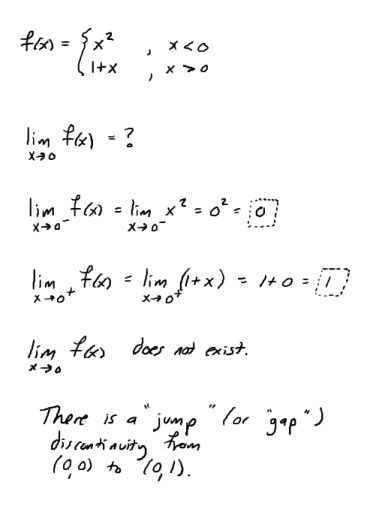 f(x) = { x² , x < 0
1+x , x > 0
lim f(x) = ?
x→0
lim f(x) = lim x² = 0² = 0
x→0⁻ x→0⁻
lim f(x) = lim (1+x) = 1+0 = 1
x→0⁺ x→0⁺
lim f(x) does not exist.
x→0
There is a "jump" (or "gap")
discontinuity from
(0,0) to (0,1).